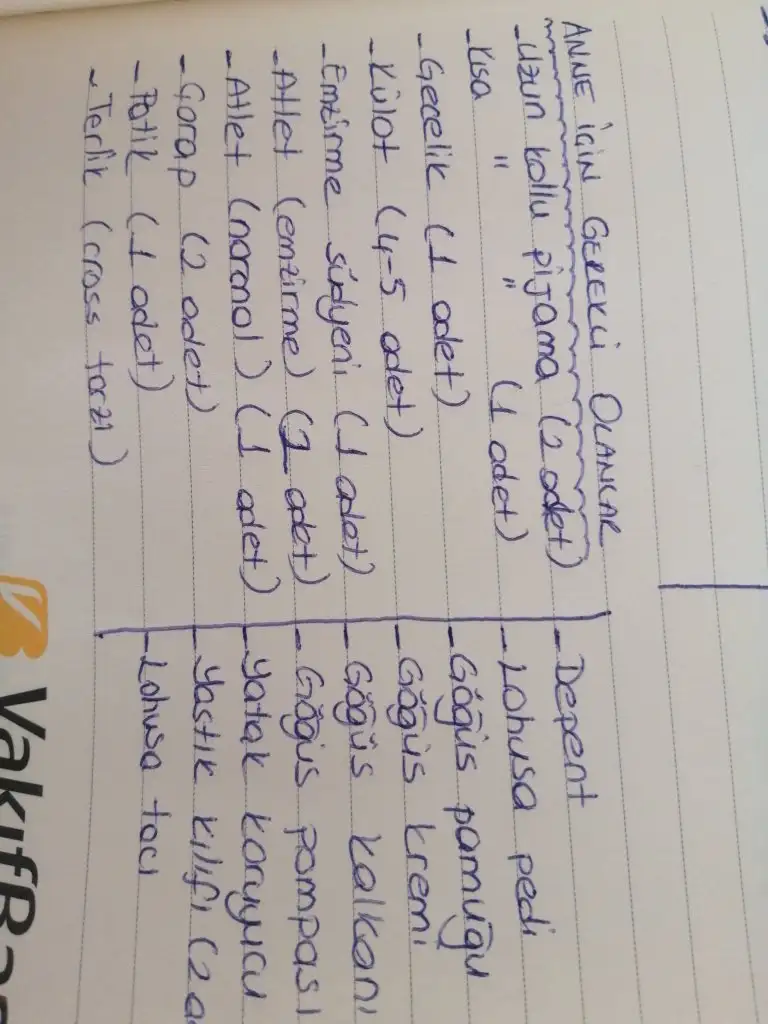 ANNE İÇİN GEREKLİ OLANLAR
- Uzun kollu pijama (2 adet)
- Kısa " " (1 adet)
- Gecelik (1 adet)
- Külot (4-5 adet)
- Emzirme sütyeni (1 adet)
- Atlet (emzirme) (2 adet)
- Atlet (normal) (1 adet)
- Çorap (2 adet)
- Patik (1 adet)
- Terlik (cross tarzı)
- Depent
- Lohusa pedi
- Göğüs pamuğu
- Göğüs kremi
- Göğüs kalkanı
- Göğüs pompası
- Yatak koruyucu
- Yastık kılıfı (2 a
- Lohusa tacı
VakıfBan